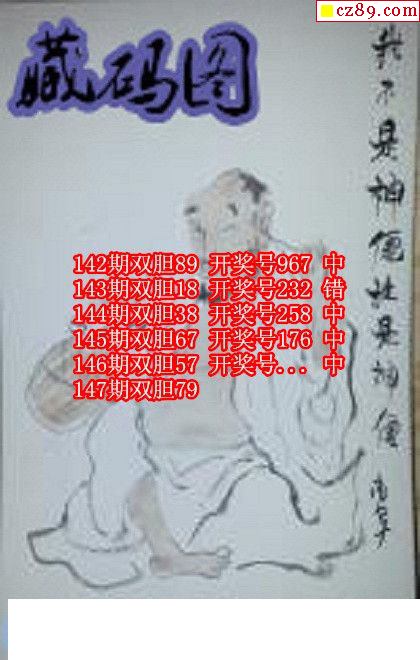 cz89.com
藏码图
142期双胆89 开奖号967 中
143期双胆18 开奖号232 错
144期双胆38 开奖号258 中
145期双胆67 开奖号176 中
146期双胆57 开奖号... 中
147期双胆79
我不是神仙 是神仙